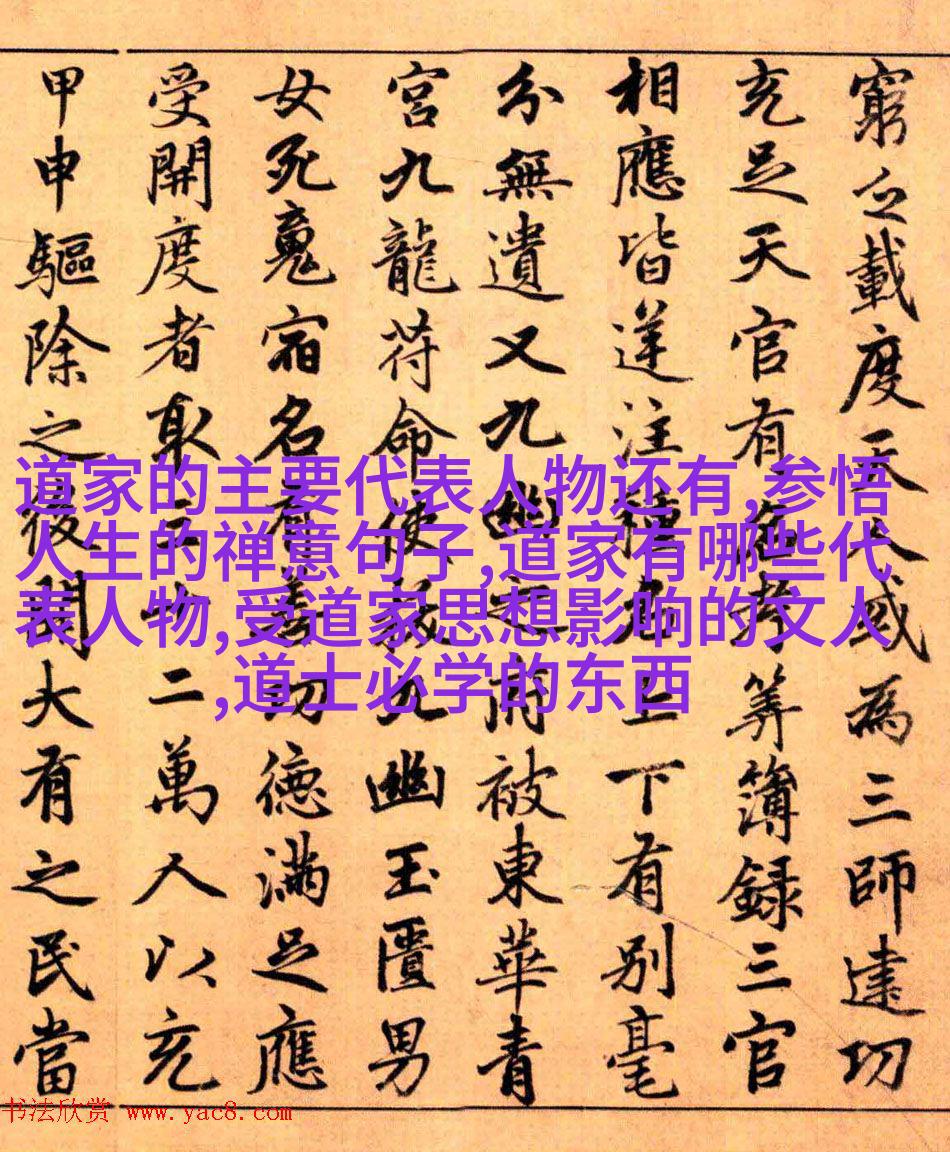 窮之載度天人或為三師建功
充足天官有司考筭簿録三官
相應皆逆注種名上下有別毫
分無遺又九幽之府被東華青
宮九龍符命使教九幽玉匱男
女死魂宿名有善功德滿足應
受開度者取三十二萬人以充
甲申驅除之後開大有之民當
道家的主要代表人物还有,参悟
人生的禅意句子,道家有哪些代
表人物,受道家思想影响的文人
,道士必学的东西
书法欣赏 www.yac8.com